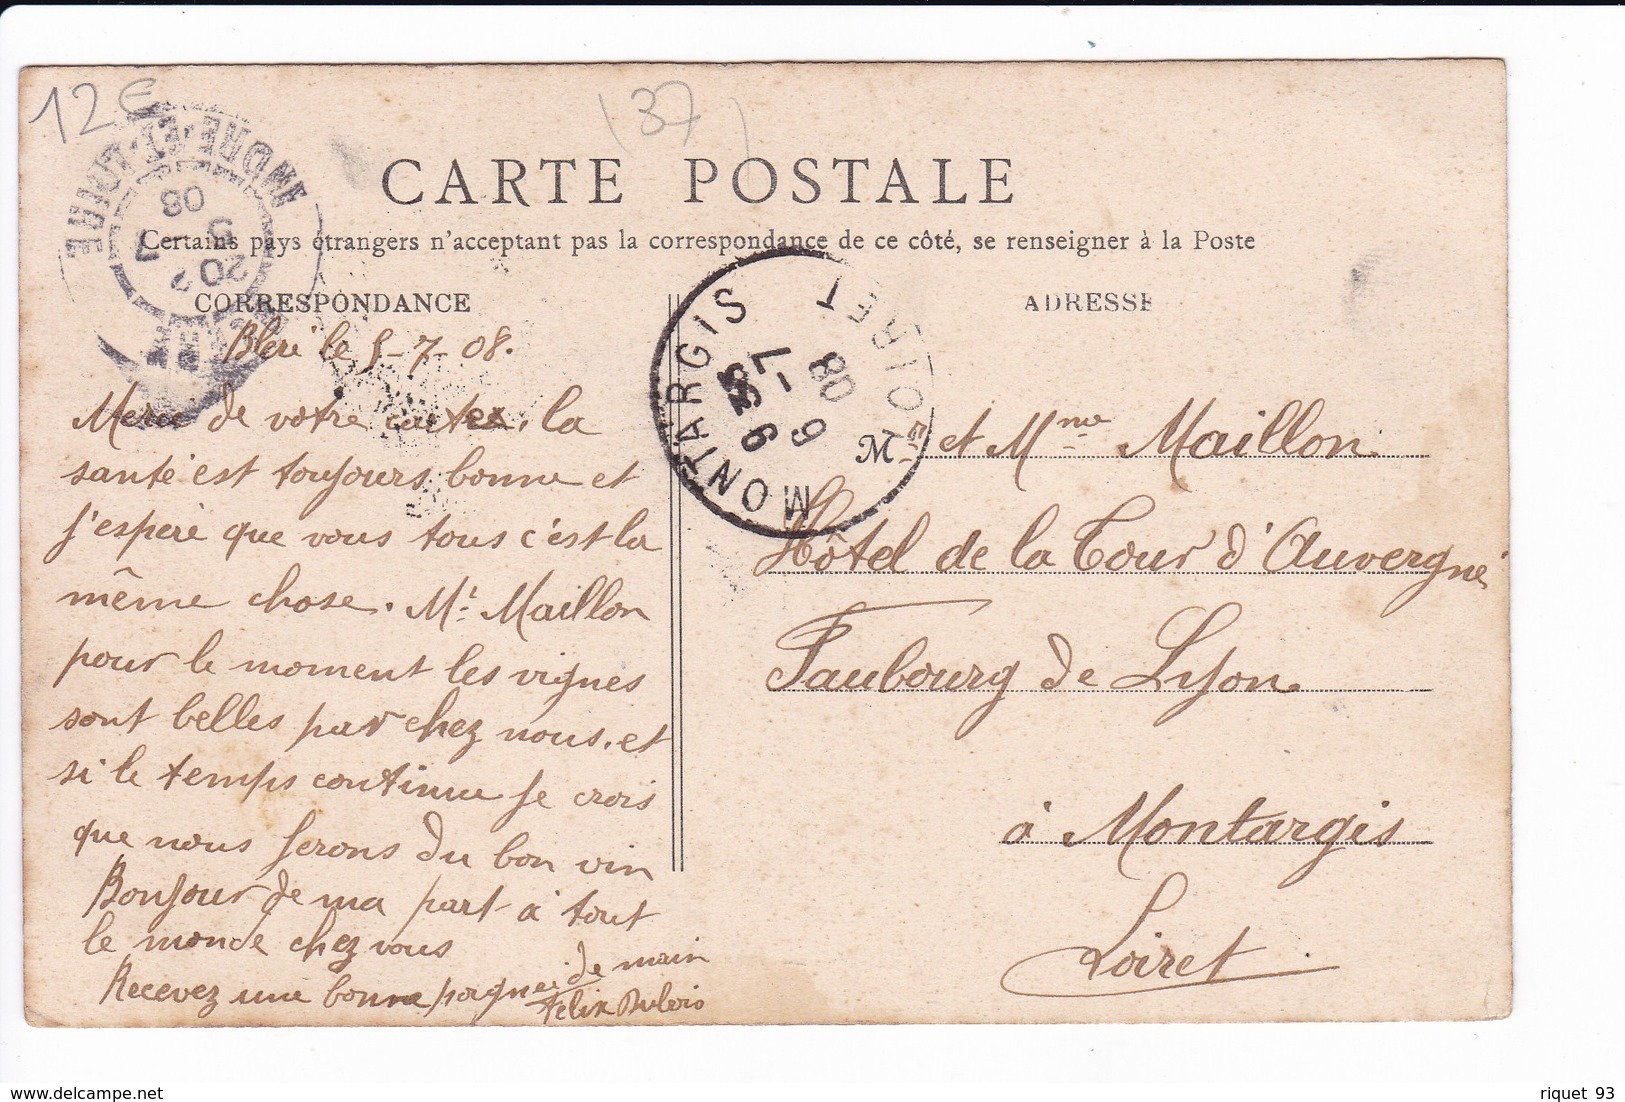 12€
(37)
INDRE-ET-LOIRE
20
5
7
08
CARTE POSTALE
Certains pays étrangers n'acceptant pas la correspondance de ce côté, se renseigner à la Poste
CORRESPONDANCE
ADRESSE
MONTARGIS LOIRET
6
-7
08
Bléré le 5-7-08.
Merci de votre carte, la
santé est toujours bonne et
j'espère que vous tous c'est la
même chose. Mr Maillon
pour le moment les vignes
sont belles par chez nous, et
si le temps continue je crois
que nous ferons du bon vin
Bonjour de ma part à tout
le monde chez vous
Recevez une bonne poignée de main
Felix Dubois
M. et Mme Maillon
Hôtel de la Tour d'Auvergne
Faubourg de Lyon
à Montargis
Loiret
riquet 93